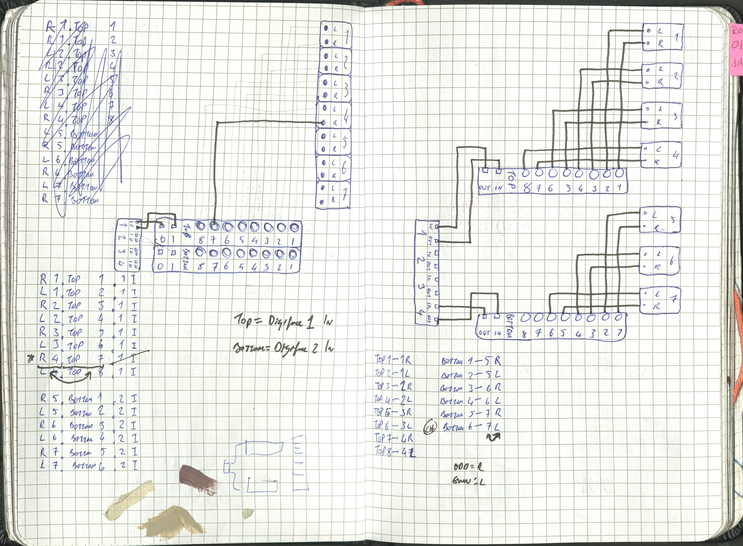 R 1. Top 1
R 1. Top 2
L 2. Top 3
R 2. Top 4
L 3. Top 5
R 3. Top 6
L 4. Top 7
R 4. Top 8
L 5. Bottom
R 5. Bottom
L 6. Bottom
R 6. Bottom
L 7. Bottom
R 7. Bottom
L R 1
L R 2
L R 3
L R 4
L R 5
L R 6
L R 7
1 2 3 4
0 1 Top 8 7 6 5 4 3 2 1
0 1 Bottom 8 7 6 5 4 3 2 1
R 1. Top 1 . 1 I
L 1. Top 2 . 1 I
R 2. Top 3 . 1 I
L 2. Top 4 . 1 I
R 3. Top 5 . 1 I
L 3. Top 6 . 1 I
R 4 Top 7 . 1 I
L Top 8 . 1 I
R 5. Bottom 1 . 2 I
L 5. Bottom 2 . 2 I
R 6. Bottom 3 . 2 I
L 6. Bottom 4 . 2 I
R 7. Bottom 5 . 2 I
L 7. Bottom 6 . 2 I
Top = Digiface 1 In
Bottom = Digiface 2 In
L R 1
L R 2
L R 3
L R 4
OUT IN TOP 8 7 6 5 4 3 2 1
1 2 3 4
L R 5
L R 6
L R 7
OUT IN BOTTOM 8 7 6 5 4 3 2 1
Top 1 - 1R
Top 2 - 1L
Top 3 - 2R
Top 4 - 2L
Top 5 - 3R
Top 6 - 3L
Top 7 - 4R
Top 8 - 4L
Bottom 1 - 5 R
Bottom 2 - 5 L
Bottom 3 - 6 R
Bottom 4 - 6 L
Bottom 5 - 7 R
Bottom 6 - 7 L
ODD = R
Even = L